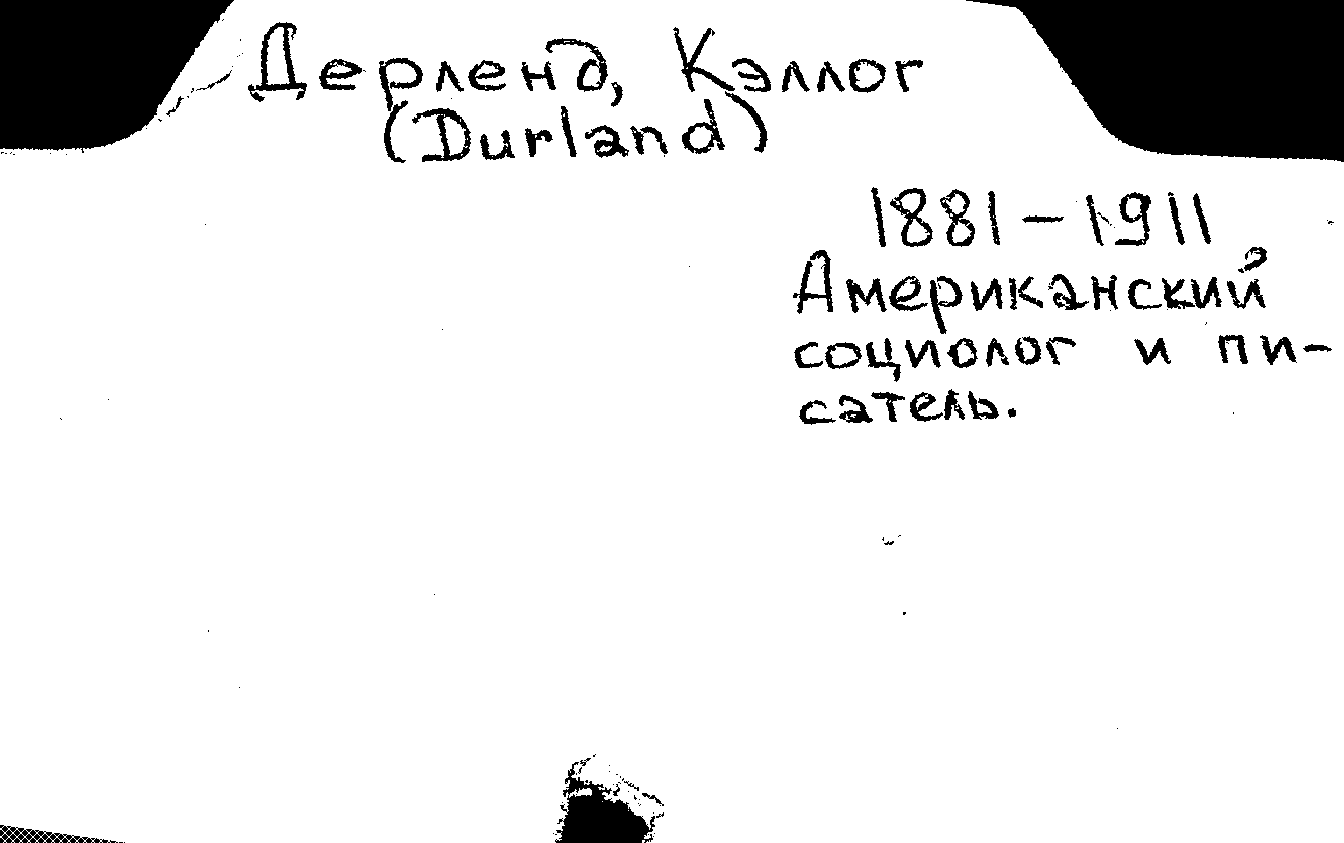 Дерленд, Кэллог
(Durland)
1881–1911
Американский
социолог и пи-
сатель.